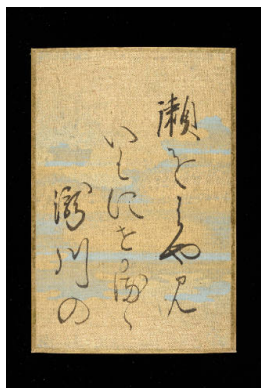 瀬をはや見
いはにせかるゝ
瀧川の